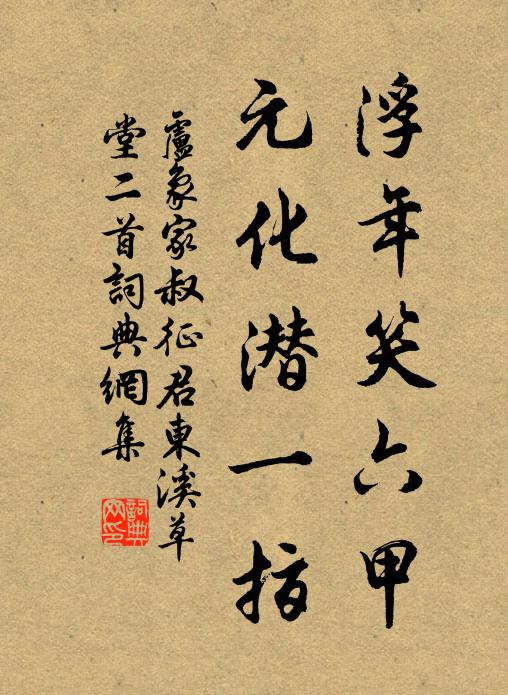 浮年笑六甲
元化潜一指
盧象家叔征君東溪草
堂二首詞典網集
詞典网印